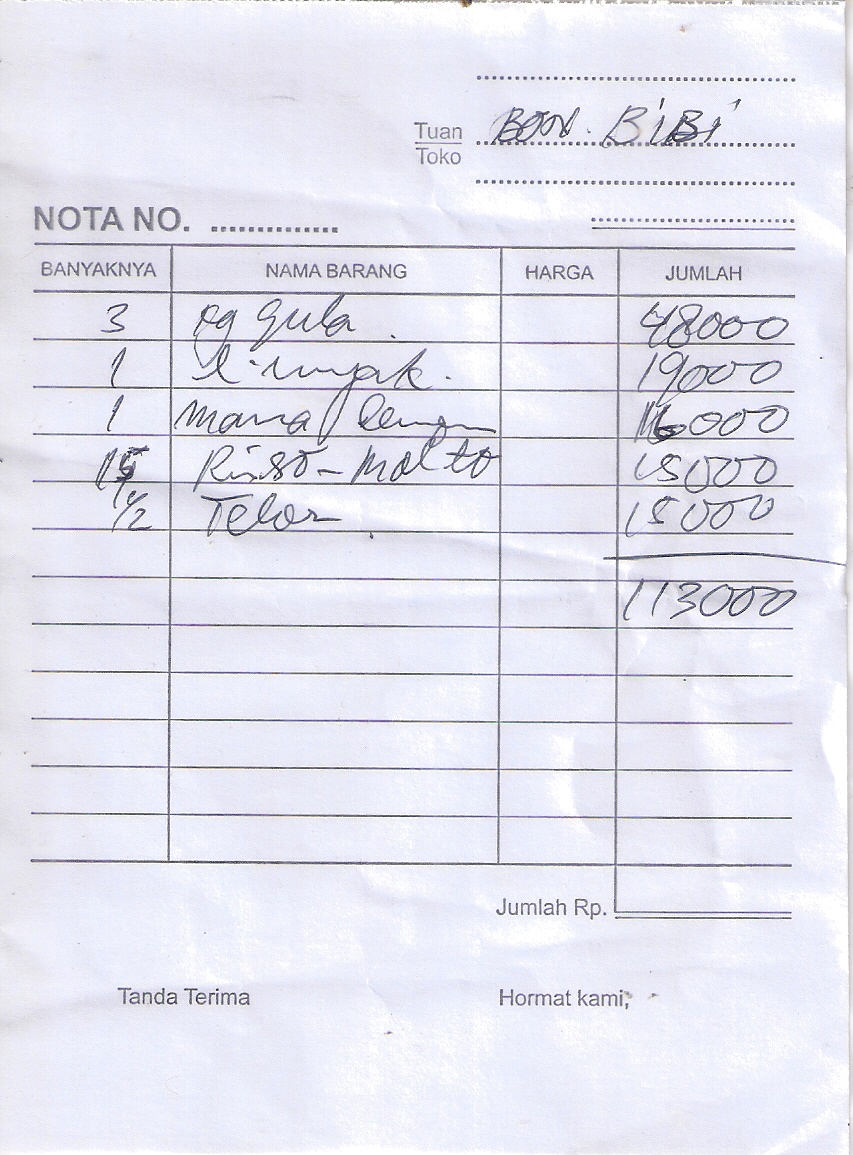 Tuan Bon. BiBi
Toko
NOTA NO. ..............
BANYAKNYA NAMA BARANG HARGA JUMLAH
3 kg gula 48000
1 l. minyak. 19000
1 mama 16000
Rinso - Molto 15000
1/2 Telor 15000
113000
Jumlah Rp.
Tanda Terima Hormat kami,